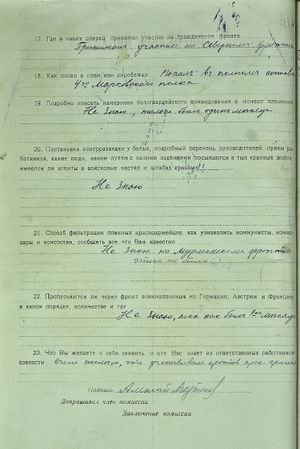 17. Где и в каких операц. принимал участие на гражданском фронте
Принимал участие на Северном фронте
18. Как попал в плен или перебежал Попал в
4го Марковского полка
19. Подробно описать намерение белогвардейского командования в момент пленения
Не знаю, только был один месяц
20. Постановка контрразведки у белых, подробный перечень руководителей, прием работников, какие люди, каким путем с какими заданиями посылаются в тыл красных войск,
имеются ли агенты в войсковых частях и штабах красных
Не знаю
21. Способ фильтрации пленных красноармейцев как узнавались коммунисты, комиссары и комсостав, сообщить все что Вам известно
Не знаю на Мурманском фронте
этого не было
22. Пропускаются ли через фронт военнопленных из Германии, Австрии и Франции,
в каком порядке, количестве и где
Не знаю, так как был 1 месяц
23. Что Вы желаете о себе заявить и кто Вас знает из ответственных работников
совласти
что участвовал против
Подпись Алексей
Допрашивал член комиссии
Заключение комиссии